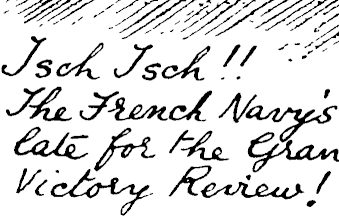 Tsch Tsch!!
The French Navy's
late for the Gran
Victory Review!